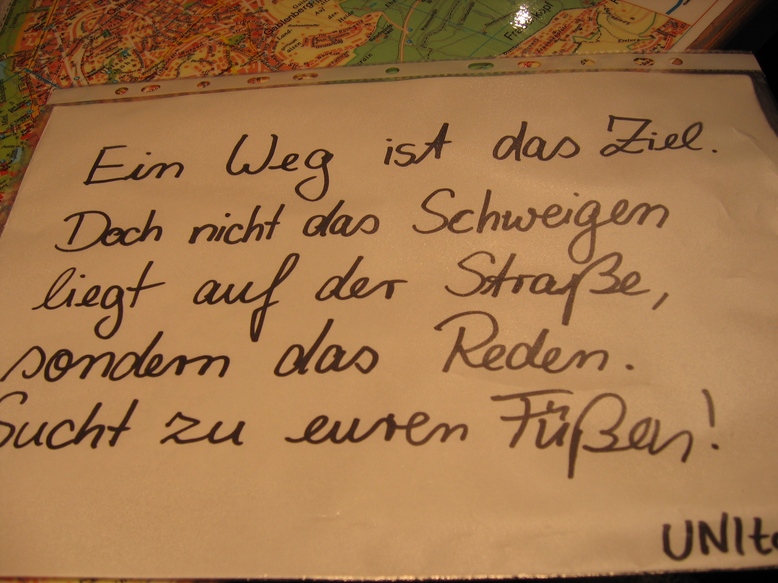 Ein Weg ist das Ziel.
Doch nicht das Schweigen
liegt auf der Straße,
sondern das Reden.
Sucht zu euren Füßen!